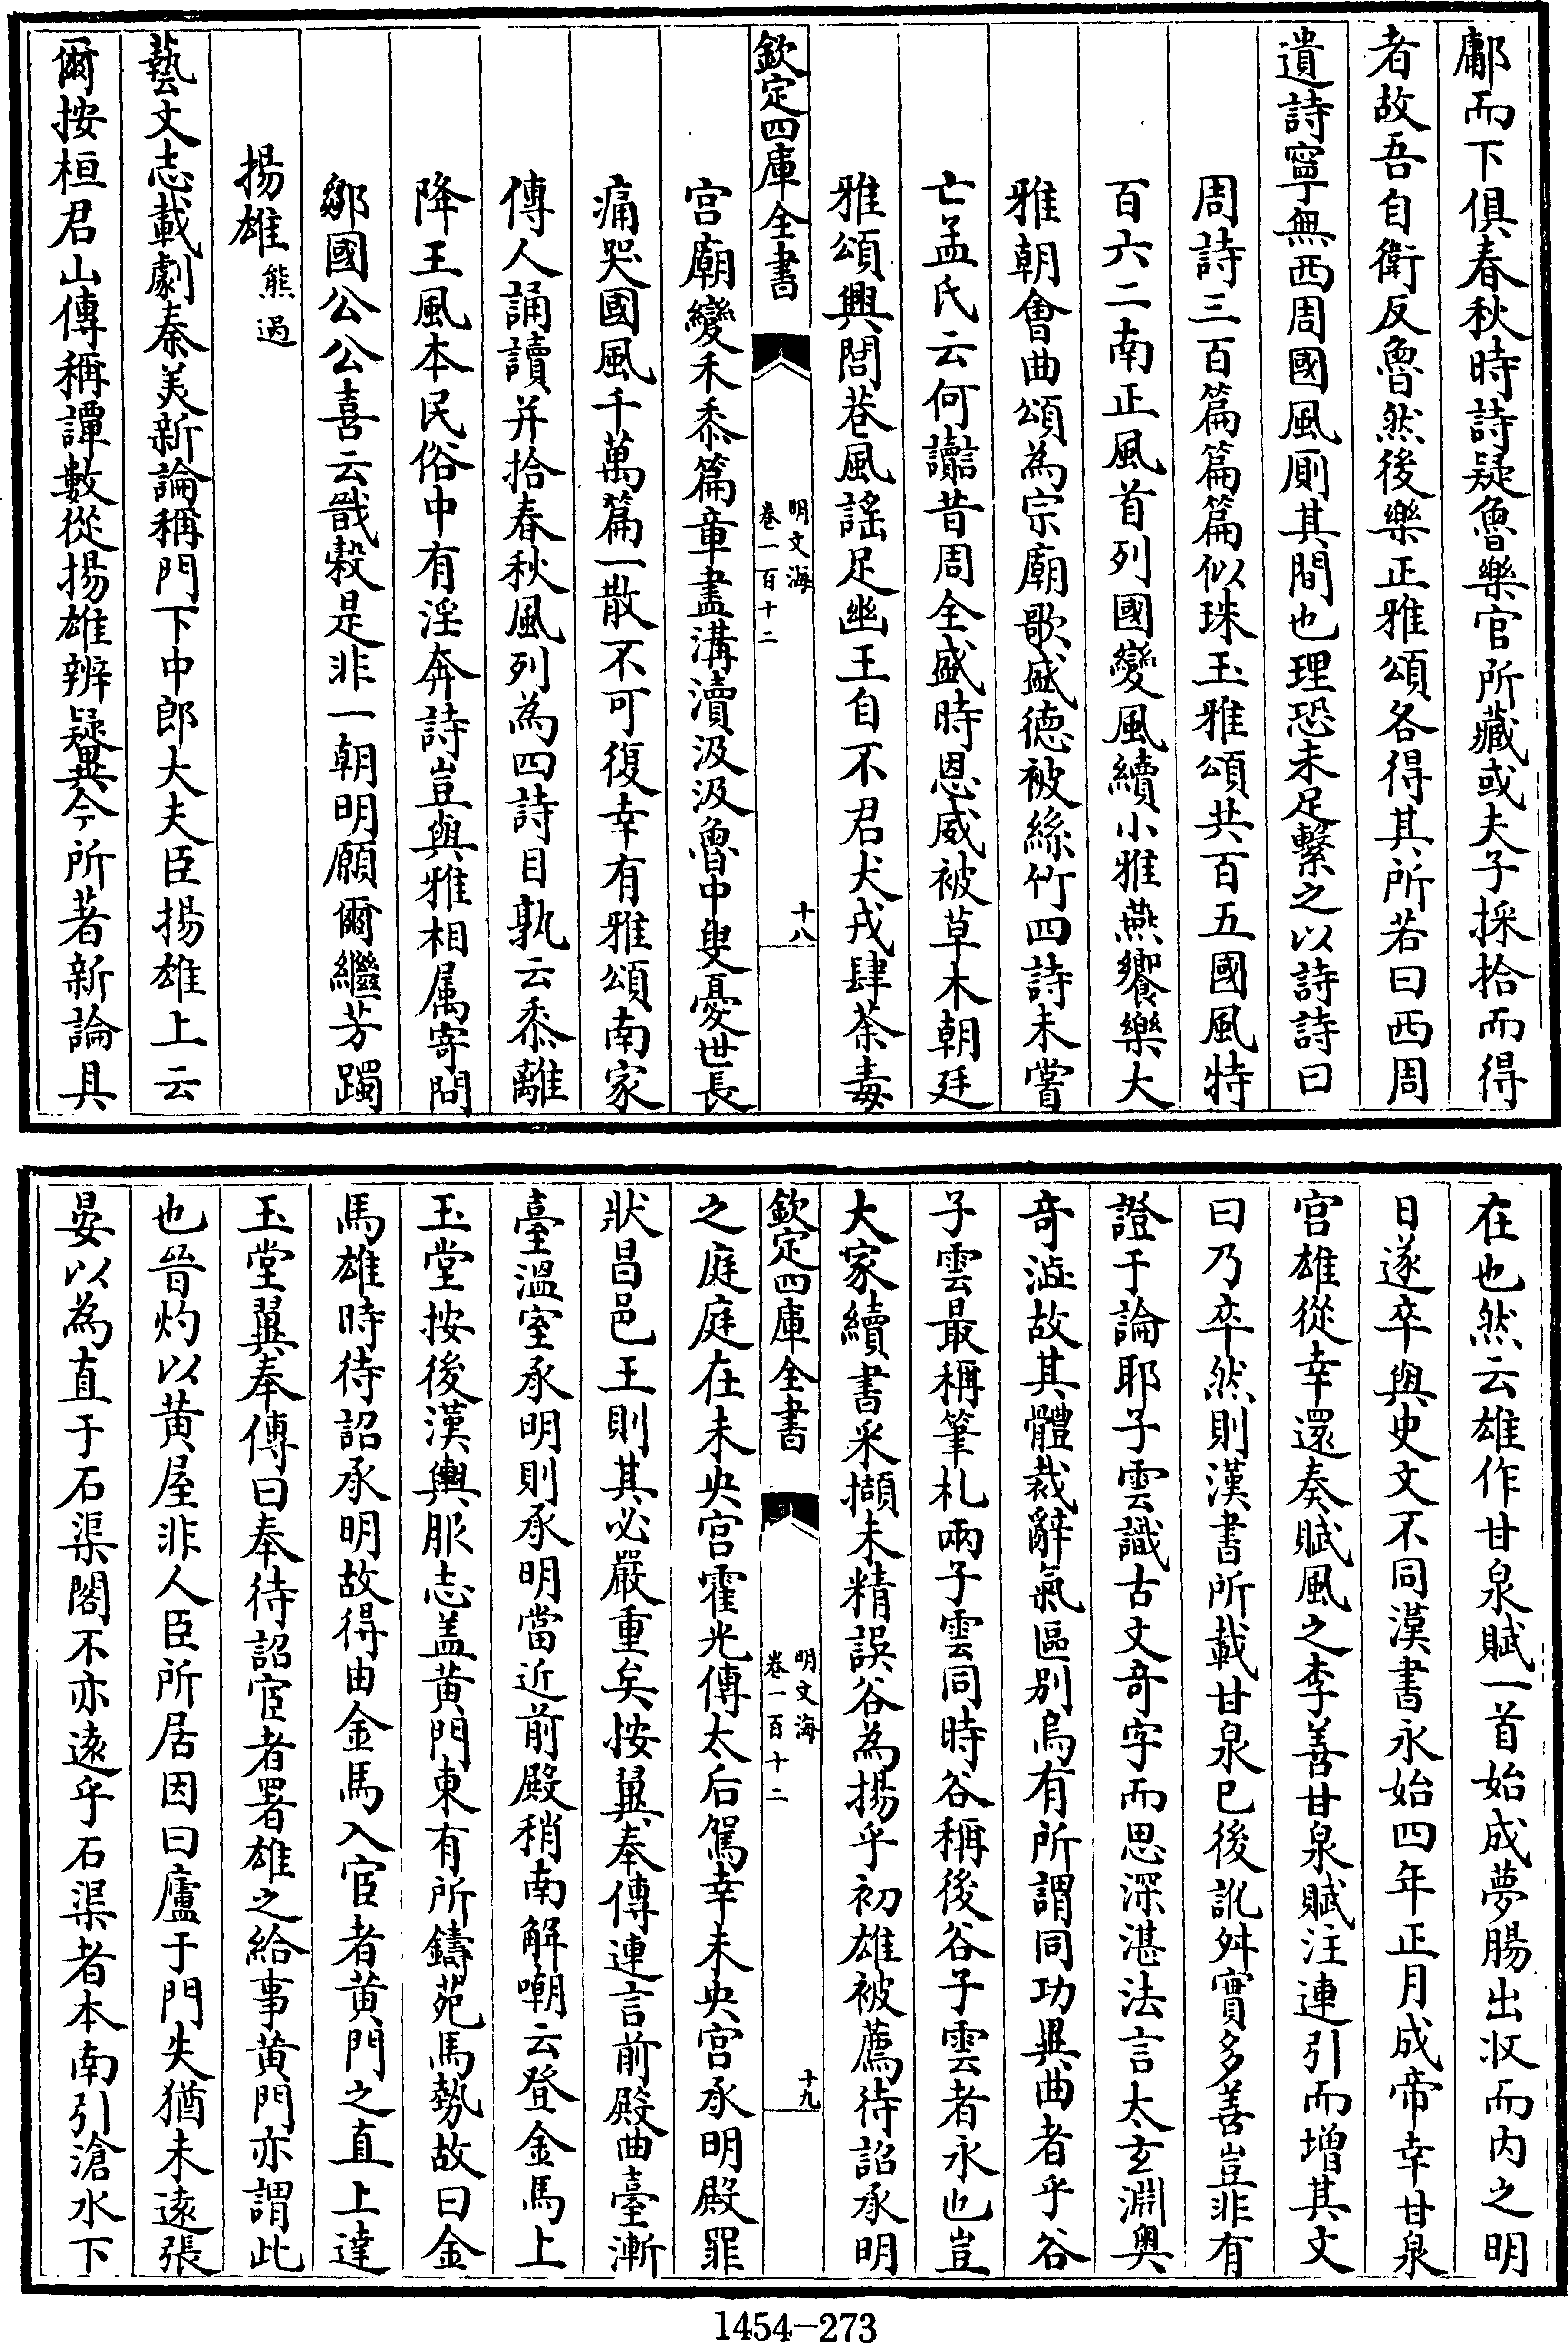 鄘而下俱春秋時詩疑魯樂官所藏或夫子採拾而得
者故吾自衛反魯然後樂正雅頌各得其所若曰西周
遺詩寧無西周國風厠其間也理恐未足繫之以詩詩曰
周詩三百篇篇篇似珠玉雅頌共百五國風特
百六二南正風首列國變風續小雅燕饗樂大
雅朝會曲頌為宗廟歌盛德被絲竹四詩未嘗
亡孟氏云何讟昔周全盛時恩威被草木朝廷
雅頌興閭巷風謡足幽王自不君犬戎肆荼毒
欽定四庫全書
明文海
卷一百十二
十八
宮廟變禾黍篇章盡溝瀆汲汲魯中叟憂世長
痛哭國風千萬篇一散不可復幸有雅頌南家
傳人誦讀并拾春秋風列為四詩目孰云黍離
降王風本民俗中有淫奔詩豈與雅相属寄問
鄒國公公喜云戩穀是非一朝明願爾繼芳躅
揚雄熊過
藝文志載劇秦美新論稱門下中郎大夫臣揚雄上云
爾按桓君山傳稱譚數從揚雄辨疑異今所著新論具
在也然云雄作甘泉賦一首始成夢腸出收而内之明
日遂卒與史文不同漢書永始四年正月成帝幸甘泉
宮雄從幸還奏賦風之李善甘泉賦注連引而增其文
曰乃卒然則漢書所載甘泉已後訛舛實多善豈非有
證于論耶子雲識古文奇字而思深湛法言太玄淵奥
奇澁故其體裁辭氣區别烏有所謂同功異曲者乎谷
子雲最稱筆札兩子雲同時谷稱後谷子雲者永也豈
大家續書采擷未精誤谷為揚乎初雄被薦待詔承明
欽定四庫全書
明文海
卷一百十二
十九
之庭庭在未央宮霍光傳太后駕幸未央宮承明殿罪
狀昌邑王則其必嚴重矣按翼奉傳連言前殿曲臺漸
臺溫室承明則承明當近前殿稍南解嘲云登金馬上
玉堂按後漢輿服志盖黄門東有所鑄苑馬勢故曰金
馬雄時待詔承明故得由金馬入宦者黄門之直上達
玉堂翼奉傳曰奉待詔宦者署雄之給事黄門亦謂此
也晉灼以黄屋非人臣所居因曰廬于門失猶未遠張
晏以為直于石渠閣不亦遠乎石渠者本南引滄水下
1454-273